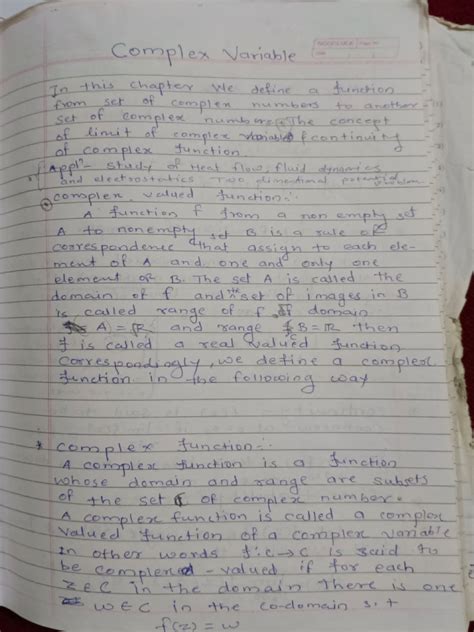 Complex Variable
In this chapter we define a function
from set of complex numbers to another
set of complex numbers. The concept
of limit of complex variable & continuity
of complex function.
Appl^n - Study of Heat flow, fluid dynamics
and electrostatics Two dimentional potential problem
Complex valued function:-
A function f from a non empty set
A to nonempty set B is a rule of
correspondence that assign to each ele-
ment of A and one and only one
element of B. The set A is called the
domain of f and the set of images in B
is called range of f. If domain
A = R and range B = R then
f is called a real valued function
Correspondingly, we define a complex
function in the following way
* Complex function:-
A complex function is a function
whose domain and range are subsets
of the set C of complex number.
A complex function is called a complex
valued function of a complex variable
In other words f: C → C is said to
be complex - valued if for each
Z ∈ C in the domain There is one
w ∈ C in the co-domain s.t
f(z) = w